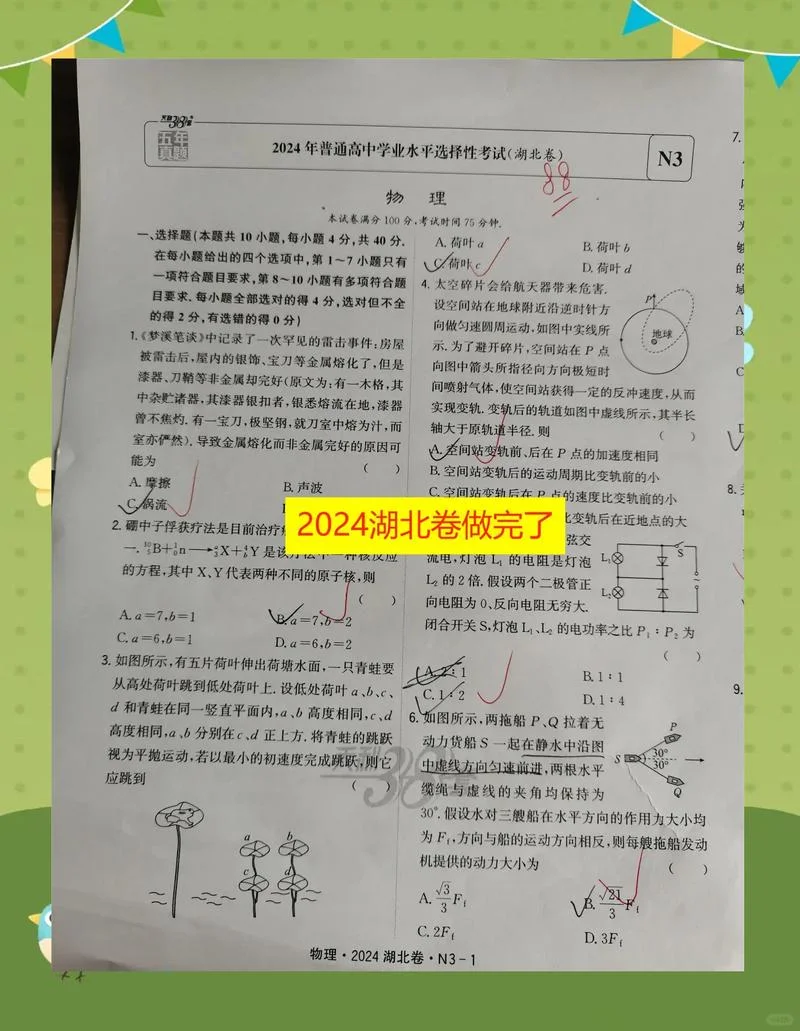 天利38套
五年
真题
2024年普通高中学业水平选择性考试(湖北卷)
N3
88
物 理
本试卷满分100分,考试时间75分钟.
一、选择题(本题共10小题,每小题4分,共40分.
在每小题给出的四个选项中,第1~7小题只有
一项符合题目要求,第8~10小题有多项符合题
目要求.每小题全部选对的得4分,选对但不全
的得2分,有选错的得0分)
1.《梦溪笔谈》中记录了一次罕见的雷击事件:房屋
被雷击后,屋内的银饰、宝刀等金属熔化了,但是
漆器、刀鞘等非金属却完好(原文为:有一木格,其
中杂贮诸器,其漆器银扣者,银悉熔流在地,漆器
曾不焦灼.有一宝刀,极坚钢,就刀室中熔为汁,而
室亦俨然).导致金属熔化而非金属完好的原因可
能为 ( )
A.摩擦 B.声波
C.涡流
2.硼中子俘获疗法是目前治疗
一.¹⁰₅B+¹₀n→ᵃ₃X+⁴ᵦY是该
的方程,其中X、Y代表两种不同的原子核,则
( )
A.a=7,b=1 B.a=7,b=2
C.a=6,b=1 D.a=6,b=2
3.如图所示,有五片荷叶伸出荷塘水面,一只青蛙要
从高处荷叶跳到低处荷叶上.设低处荷叶a、b、c、
d和青蛙在同一竖直平面内,a、b高度相同,c、d
高度相同,a、b分别在c、d正上方.将青蛙的跳跃
视为平抛运动,若以最小的初速度完成跳跃,则它
应跳到 ( )
a b
c d
A.荷叶a B.荷叶b
C.荷叶c D.荷叶d
4.太空碎片会给航天器带来危害.
设空间站在地球附近沿逆时针方
向做匀速圆周运动,如图中实线所
示.为了避开碎片,空间站在P点
向图中箭头所指径向方向极短时
间喷射气体,使空间站获得一定的反冲速度,从而
实现变轨.变轨后的轨道如图中虚线所示,其半长
轴大于原轨道半径.则 ( )
P
地球
A.空间站变轨前、后在P点的加速度相同
B.空间站变轨后的运动周期比变轨前的小
C.空间站变轨后在P点的速度比变轨前的小
比变轨后在近地点的大
2024湖北卷做完了
弦交
流电,灯泡L₁的电阻是灯泡
L₂的2倍.假设两个二极管正
向电阻为0、反向电阻无穷大.
闭合开关S,灯泡L₁、L₂的电功率之比P₁∶P₂为
( )
L₁
S
L₂
A.2∶1 B.1∶1
C.1∶2 D.1∶4
6.如图所示,两拖船P、Q拉着无
动力货船S一起在静水中沿图
中虚线方向匀速前进,两根水平
缆绳与虚线的夹角均保持为
30°.假设水对三艘船在水平方向的作用力大小均
为Ff,方向与船的运动方向相反,则每艘拖船发动
机提供的动力大小为 ( )
P
S 30°
30°
Q
A.√3/3 Ff B.√21/3 Ff
C.2Ff D.3Ff
天利38套
物理·2024湖北卷·N3-1
7.
8.
9.